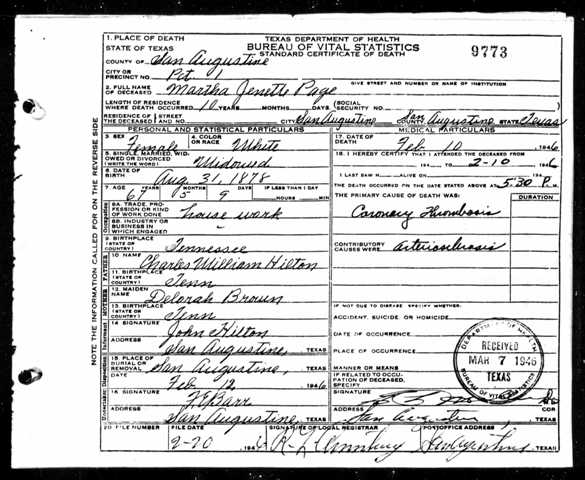 1. PLACE OF DEATH
STATE OF TEXAS
TEXAS DEPARTMENT OF HEALTH
BUREAU OF VITAL STATISTICS
STANDARD CERTIFICATE OF DEATH
9773
COUNTY OF San Augustine
CITY OR PRECINCT NO. Pct 1
GIVE STREET AND NUMBER OR NAME OF INSTITUTION
2. FULL NAME OF DECEASED Martha Jenette Page
LENGTH OF RESIDENCE WHERE DEATH OCCURRED 10 YEARS MONTHS DAYS (SOCIAL SECURITY NO.
RESIDENCE OF THE DECEASED STREET AND NO. CITY San Augustine COUNTY San Augustine STATE Texas
PERSONAL AND STATISTICAL PARTICULARS
3. SEX Female
4. COLOR OR RACE White
5. SINGLE, MARRIED, WIDOWED OR DIVORCED (WRITE THE WORD) Widowed
6. DATE OF BIRTH Aug 31, 1878
7. AGE 67 YEARS 5 MONTHS 9 DAYS IF LESS THAN 1 DAY HOURS MIN
8A. TRADE, PROFESSION OR KIND OF WORK DONE house work
8B. INDUSTRY OR BUSINESS IN WHICH ENGAGED
9. BIRTHPLACE (STATE OR COUNTRY) Tennessee
FATHER
10. NAME Charles William Hilton
11. BIRTHPLACE (STATE OR COUNTRY) Tenn
MOTHER
12. MAIDEN NAME Delorah Brown
13. BIRTHPLACE (STATE OR COUNTRY) Tenn
14. SIGNATURE John Hilton
ADDRESS San Augustine, TEXAS
15. PLACE OF BURIAL OR REMOVAL San Augustine, TEXAS
DATE Feb 12 1946
16. SIGNATURE
ADDRESS San Augustine, TEXAS
MEDICAL PARTICULARS
17. DATE OF DEATH Feb 10 1946
18. I HEREBY CERTIFY THAT I ATTENDED THE DECEASED FROM
2-10 1946
I LAST SAW H ALIVE ON 19
THE DEATH OCCURRED ON THE DATE STATED ABOVE AT 5:30 P. M.
THE PRIMARY CAUSE OF DEATH WAS: DURATION
Coronary Thrombosis
CONTRIBUTORY CAUSES WERE arteriosclerosis
IF NOT DUE TO DISEASE SPECIFY WHETHER:
ACCIDENT, SUICIDE OR HOMICIDE
DATE OF OCCURRENCE
PLACE OF OCCURRENCE
MANNER OR MEANS
IF RELATED TO OCCUPATION OF DECEASED, SPECIFY
SIGNATURE
ADDRESS San Augustine, TEXAS
DEPARTMENT OF HEALTH
RECEIVED
MAR 7 1946
TEXAS
BUREAU OF VITAL STATISTICS
20. FILE NUMBER FILE DATE SIGNATURE OF LOCAL REGISTRAR POSTOFFICE ADDRESS
2-20 194 San Augustine TEXAS
NOTE THE INFORMATION CALLED FOR ON THE REVERSE SIDE